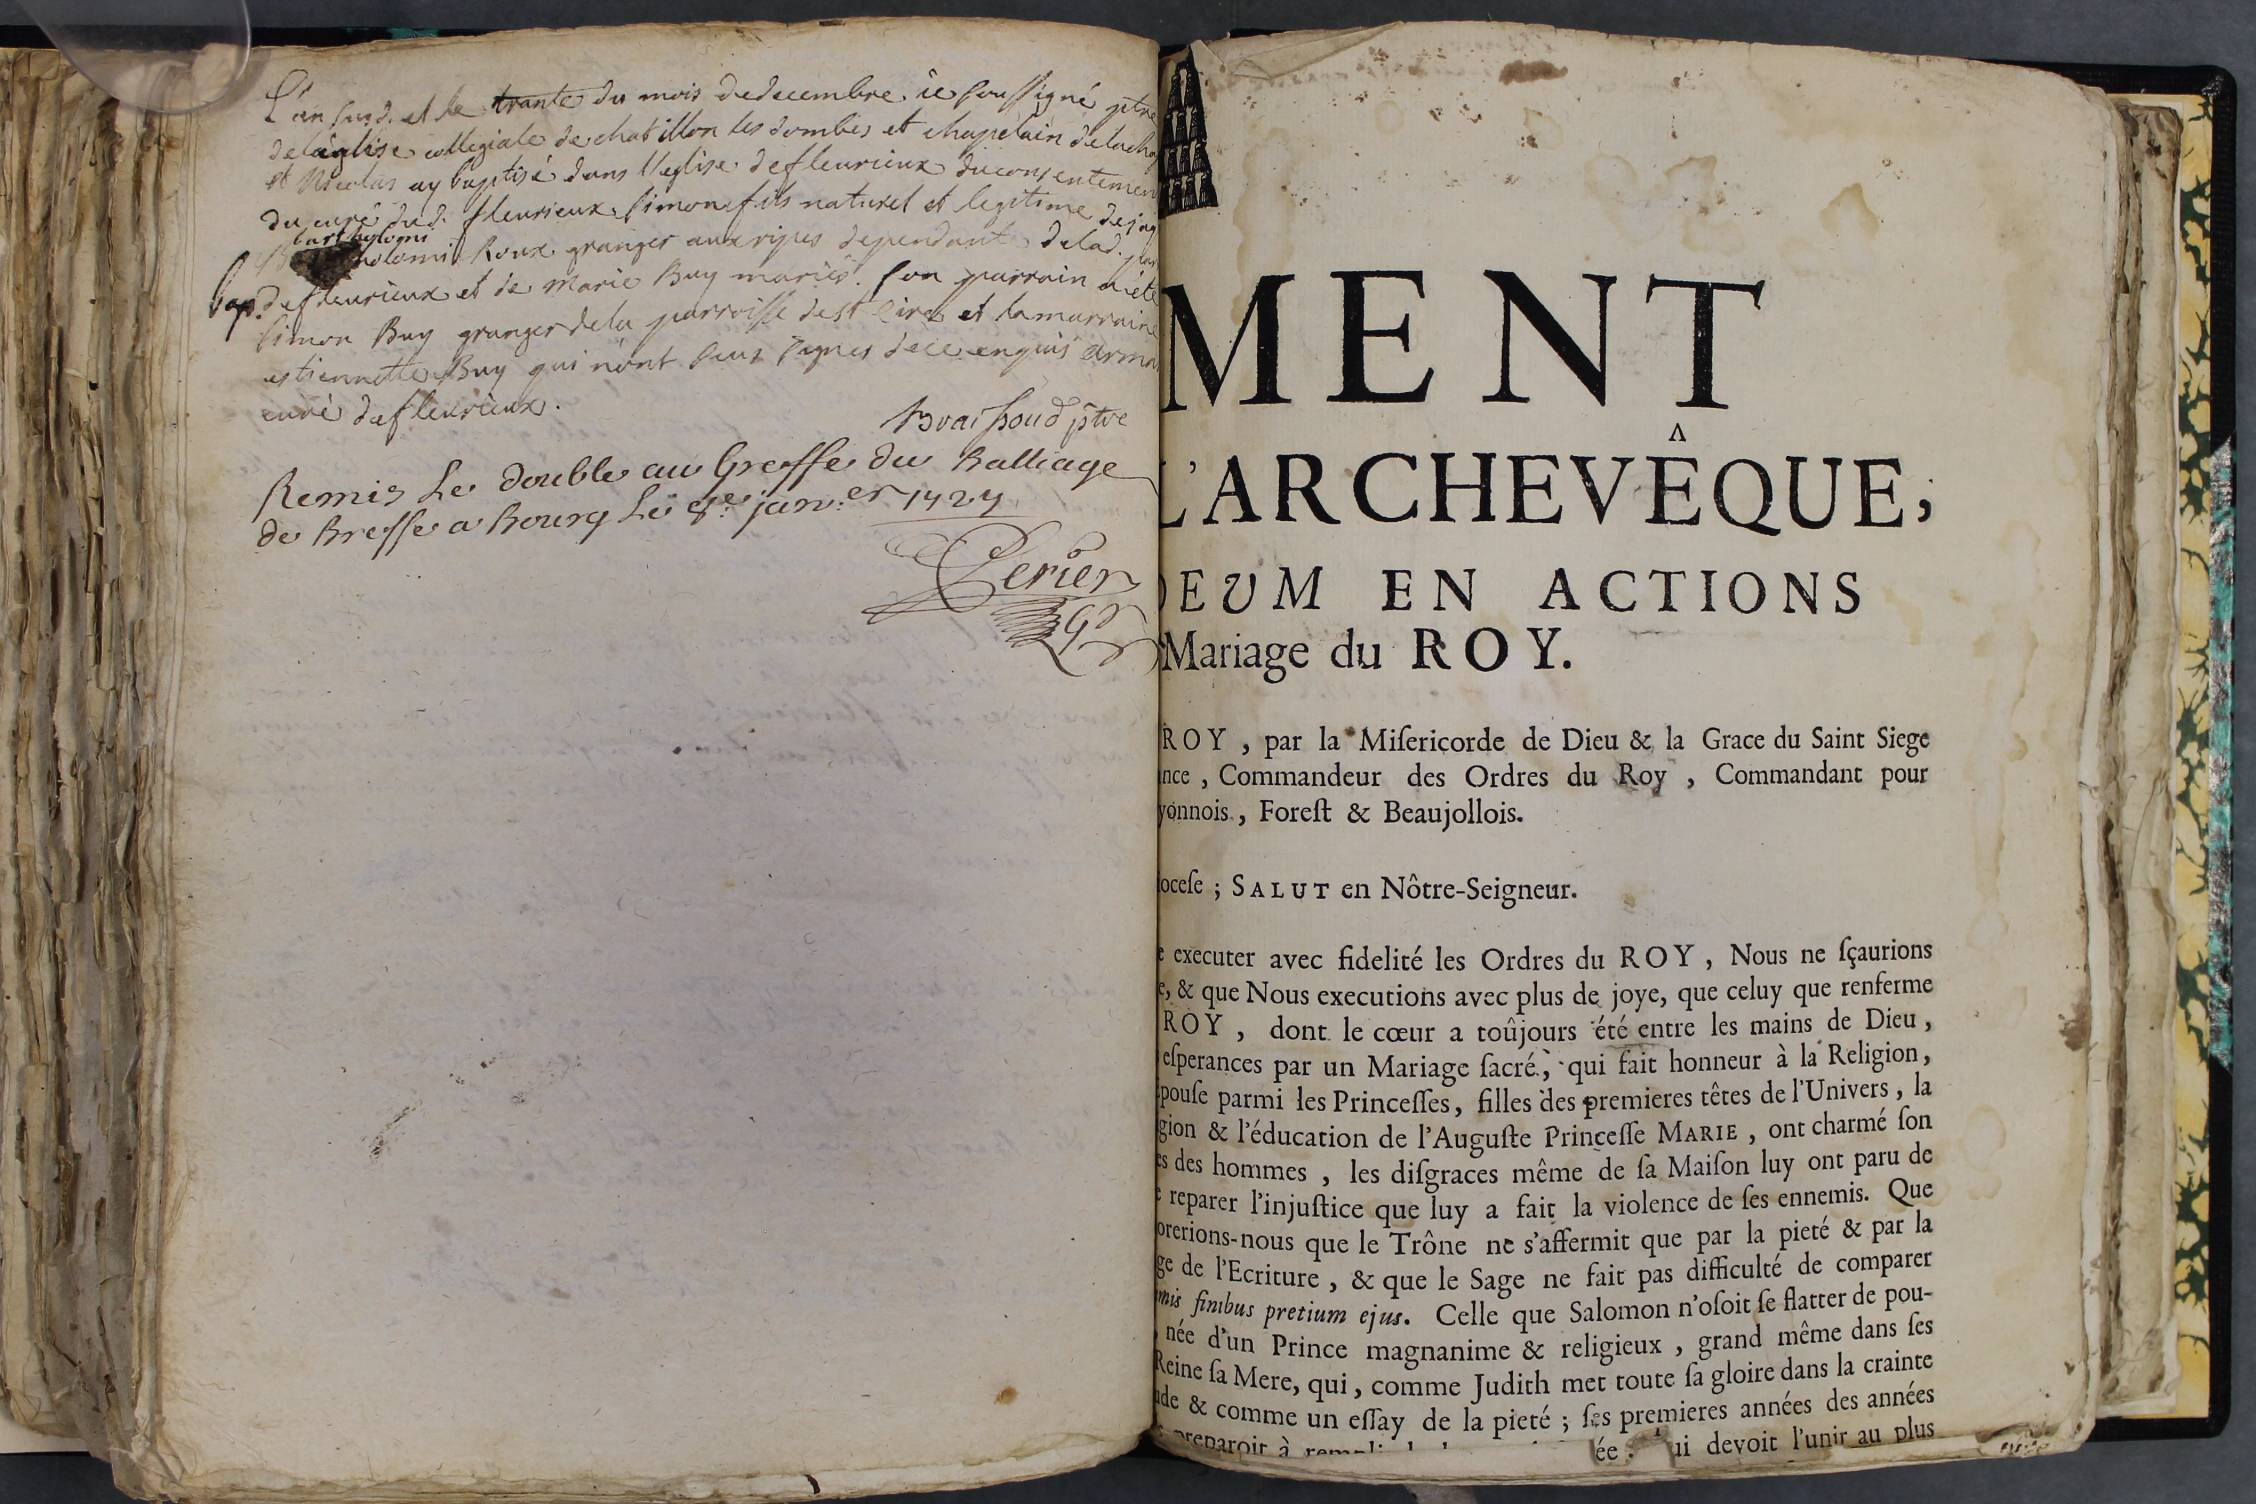 L'an susd. et le trante du mois de decembre ie soussigné ptre
de leglise collegiale de chatillon les dombes et chapelain
et Nicolas ay baptisé dans l'eglise de fleurieux du consentemen
du curé dud. fleurieux Simon fils naturel et legitime de
bartholomi
Roux granger aux ripes dependant de lad.
bap. de fleurieux et de Marie Buy mariés. son parrain a été
simon Buy granger de la parroisse de st Cire et la marraine
estiennette Buy qui n'ont sceu signer de ce enquis
curé de fleurieux.
ptre
Remis Le double au Greffe du Balliage
de Bresse a Bourg Le janer 1727
Perier
MENT
L'ARCHEVÊQUE,
DEUM EN ACTIONS
Mariage du ROY.
ROY, par la Misericorde de Dieu & la Grace du Saint Siege
nce, Commandeur des Ordres du Roy, Commandant pour
yonnois, Forest & Beaujollois.
iocese; SALUT en Nôtre-Seigneur.
e executer avec fidelité les Ordres du ROY, Nous ne sçaurions
e, & que Nous executions avec plus de joye, que celuy que renferme
ROY, dont le cœur a toûjours été entre les mains de Dieu,
esperances par un Mariage sacré, qui fait honneur à la Religion,
pouse parmi les Princesses, filles des premieres têtes de l'Univers, la
gion & l'éducation de l'Auguste Princesse MARIE, ont charmé son
es des hommes, les disgraces même de sa Maison luy ont paru de
e reparer l'injustice que luy a fait la violence de ses ennemis. Que
orerions-nous que le Trône ne s'affermit que par la pieté & par la
ge de l'Ecriture, & que le Sage ne fait pas difficulté de comparer
mis finibus pretium ejus. Celle que Salomon n'osoit se flatter de pou-
, née d'un Prince magnanime & religieux, grand même dans ses
Reine sa Mere, qui, comme Judith met toute sa gloire dans la crainte
ude & comme un essay de la pieté; ses premieres années des années
preparoit à ée. ui devoit l'unir au plus